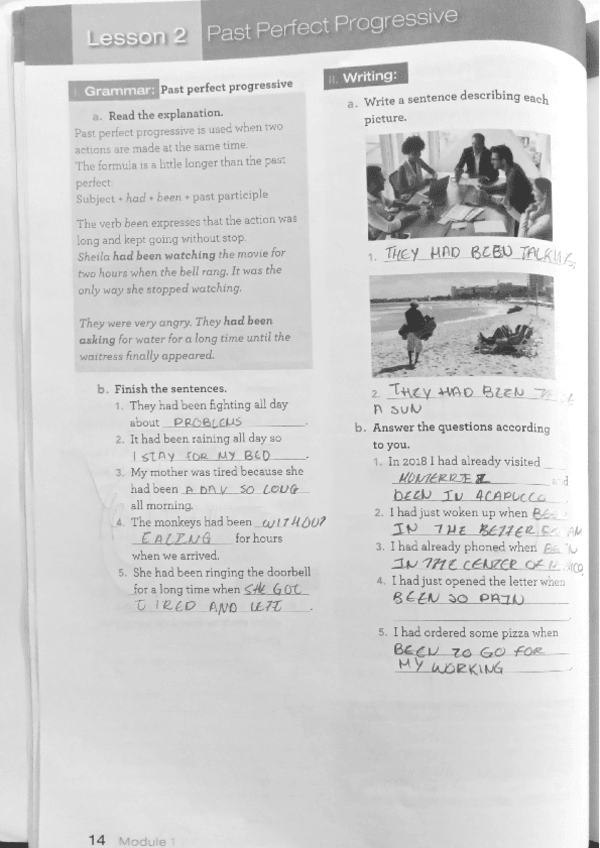 Lesson 2 Past Perfect Progressive
I. Grammar: Past perfect progressive
a. Read the explanation.
Past perfect progressive is used when two
actions are made at the same time.
The formula is a little longer than the past
perfect:
Subject + had + been + past participle
The verb been expresses that the action was
long and kept going without stop.
Sheila had been watching the movie for
two hours when the bell rang. It was the
only way she stopped watching.
They were very angry. They had been
asking for water for a long time until the
waitress finally appeared.
b. Finish the sentences.
1. They had been fighting all day
about PROBLEMS.
2. It had been raining all day so
I STAY FOR MY BED.
3. My mother was tired because she
had been A DAY SO LONG
all morning.
4. The monkeys had been WITHOUT
EALING for hours
when we arrived.
5. She had been ringing the doorbell
for a long time when SHE GOT
TIRED AND LEFT.
II. Writing:
a. Write a sentence describing each
picture.
1. THEY HAD BEEN TALKING
2. THEY HAD BEEN
A SUN
b. Answer the questions according
to you.
1. In 2018 I had already visited
and
BEEN IN ACAPULCO.
2. I had just woken up when
IN THE BETTER
3. I had already phoned when
IN THE CENTER OF
4. I had just opened the letter when
BEEN SO PAIN
5. I had ordered some pizza when
BEEN TO GO FOR
MY WORKING.
14 Module 1